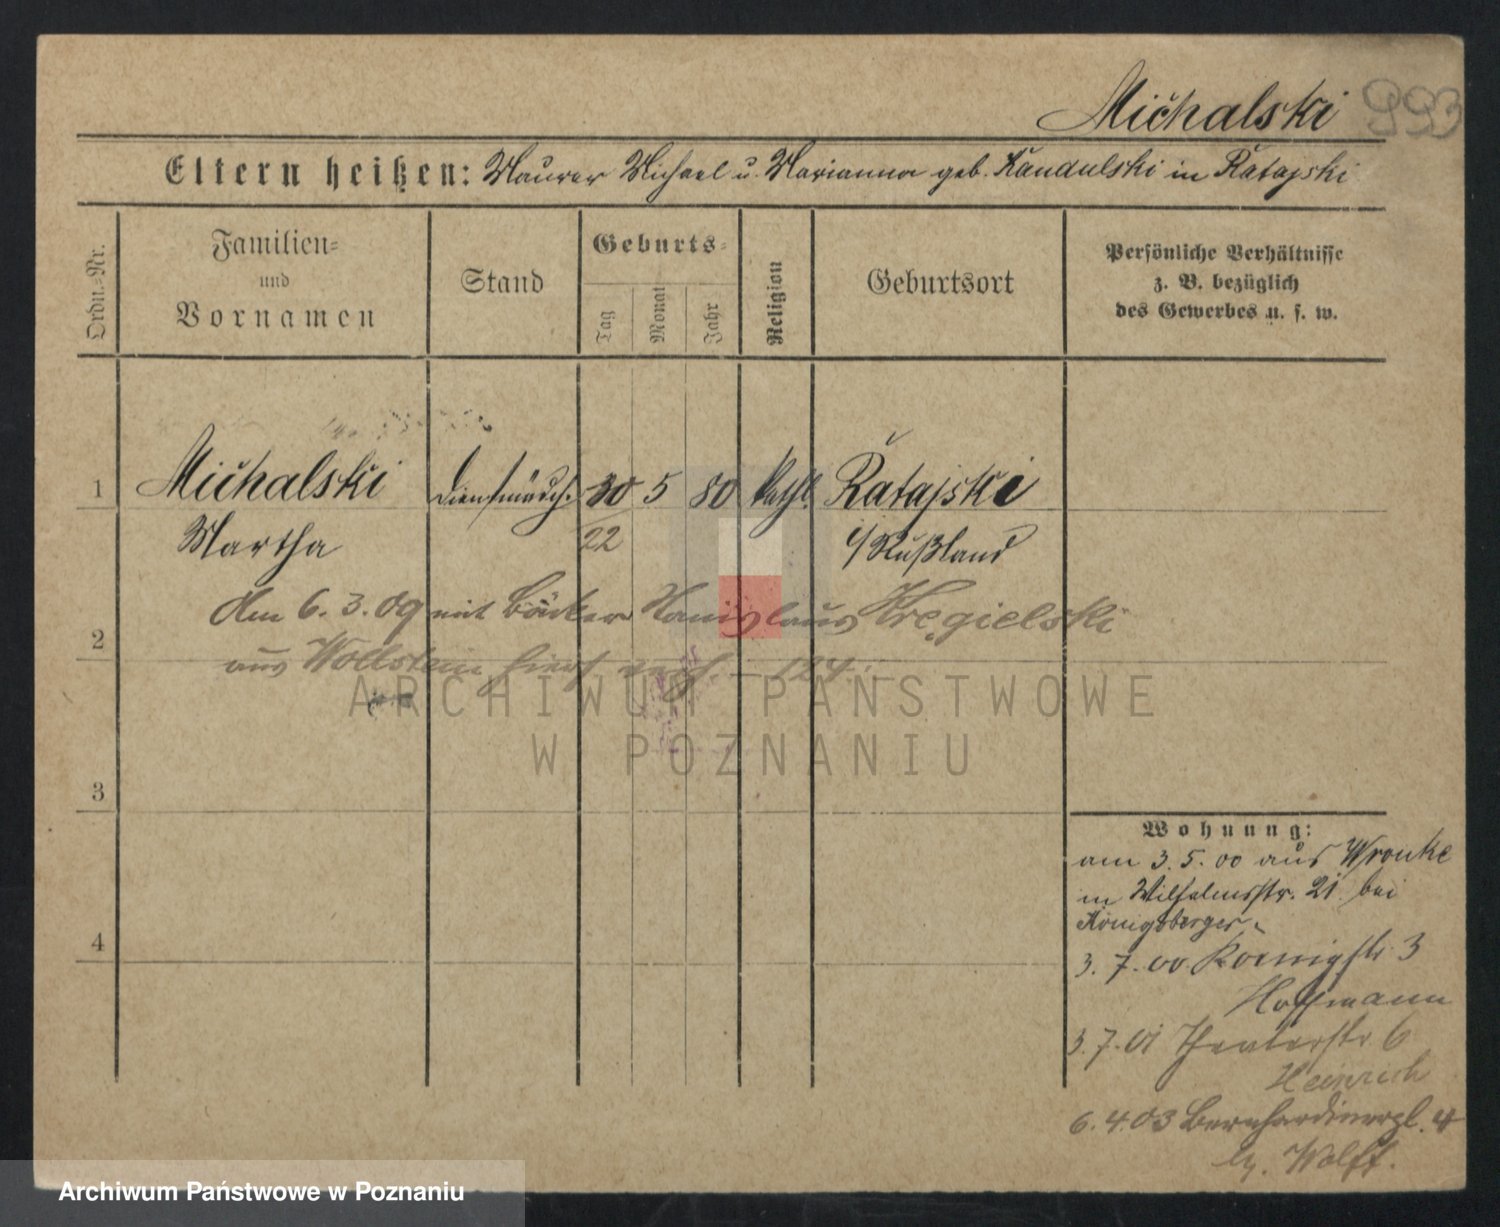 Michalski 993
Eltern heißen: Maurer Michael u. Marianna geb. Kandulski in Ratajski
Ordn.-Nr.
Familien-
und
Vornamen
Stand
Geburts-
Tag
Monat
Jahr
Religion
Geburtsort
Persönliche Verhältnisse
z. B. bezüglich
des Gewerbes u. s. w.
1 Michalski Dienstmädch. 30 5 80 kath. Ratajski
Martha 22 i/Rußland
Am 6.3.09 mit Bäcker Stanislaus Kręgielski
2
aus Wollstein hier verh. - 124.-
ARCHIWUM PAŃSTWOWE
W POZNANIU
3
Wohnung:
am 3.5.00 aus Wronke
in Wilhelmstr. 21 bei
Königsberger
4
3.7.00 Koenigstr. 3
Hoffmann
3.7.01 Theaterstr. 6
Heinrich
6.4.03 Bernhardinerpl. 4
Wolff.
Archiwum Państwowe w Poznaniu